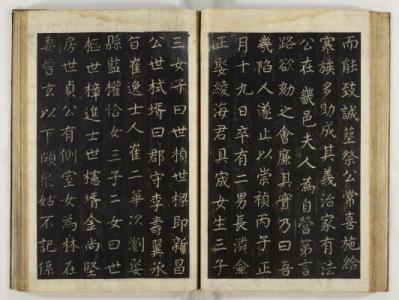 而能致誠祭公常喜施給
寒族多助成其義治家有法
公在畿邑夫人為自營第言
路欲劾之會廉其實乃曰吾
幾陷人遂止以崇禎丙子正
月十九日卒有二男長僉
正娶綾海君具宬女生三子
三女子曰世楨世樑即新昌
公世栻壻曰郡守李壽翼承
旨崔逸士人崔二華次瀏娶
縣監權恰女三子二女曰世
樞世橦進士世櫶壻金尚堅
房世貞公有側室女為林在
妻曾玄以下頗眾姑不記係